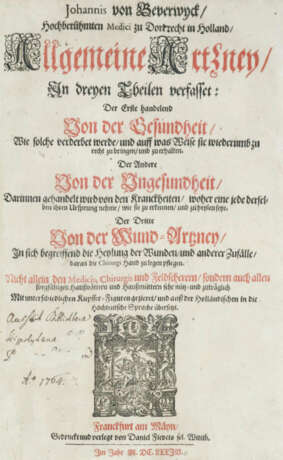 Johannis von Beverwyck/
Hochberühmten Medici zu Dordrecht in Holland/
Allgemeine Artzney/
In dreyen Theilen verfasset:
Der Erste handelend
Von der Gesundheit/
Wie solche verderbet werde/ und auff was Weise sie wiederumb zu
recht zu bringen/ und zu erhalten.
Der Andere
Von der Ungesundheit/
Darinnen gehandelt wird von den Kranckheiten/ woher eine jede dersel-
ben ihren Ursprung nehme/ wie sie zu erkennen/ und zu
Der Dritte
Von der Wund-Artzney/
In sich begreiffend die Heylung der Wunden/ und anderer Zufälle/
daran die Chirurgi Hand zu legen pflegen.
Nicht allein den Medicis, Chirurgis und Feldscherern/ sondern auch allen
sorgfältigen Haußvättern und Haußmüttern sehr nütz- und zuträglich
Mit unterschiedlichen Kupffer-Figuren gezieret/ und auß der Holländischen in die
Hochteutsche Sprache übersetzt.
Aº 1764.
Franckfurt am Mäyn/
Gedruckt und verlegt von Daniel Fievets sel. Wittib.
Im Jahr M. DC.